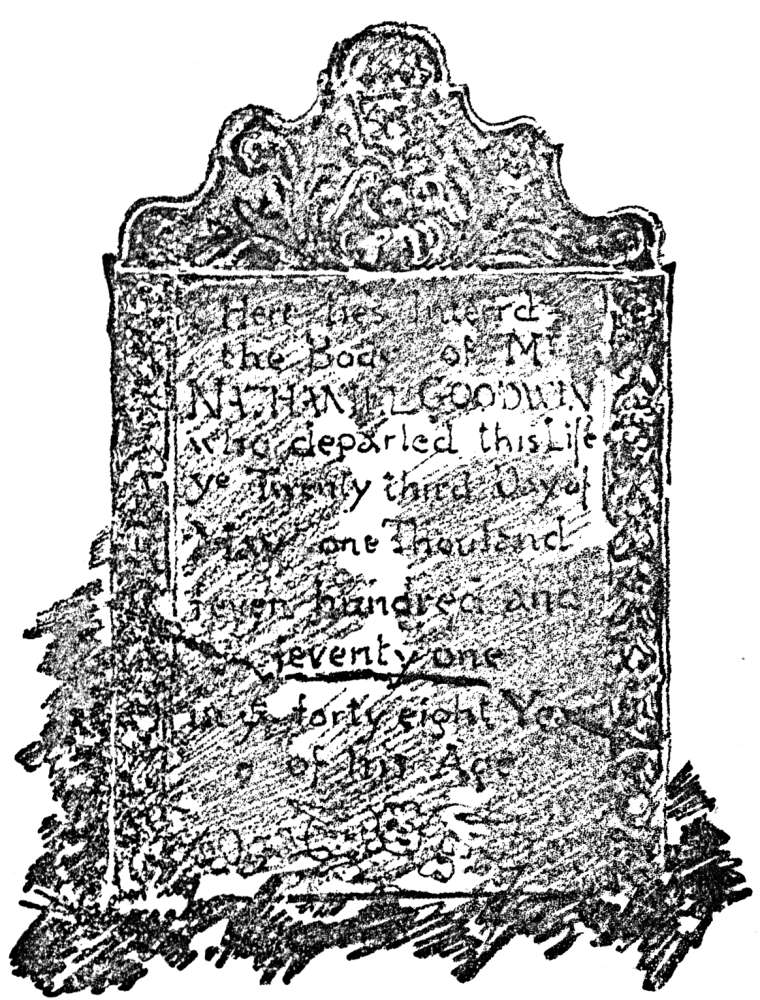 Here lies Interrd
the Body of Mr
NATHANIEL GOODWIN
who departed this Life
ye Twenty third Day of
May one Thousand
seven hundred and
seventy one
in ye forty eight Year
of his Age